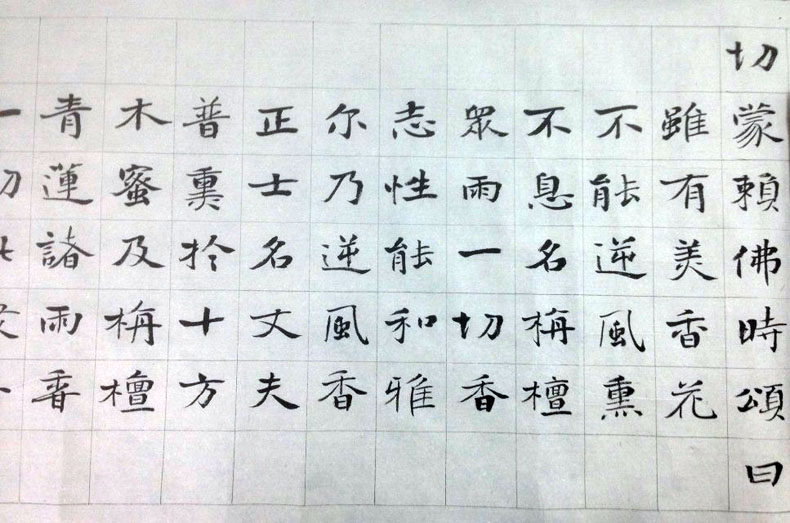 切蒙賴佛時頌曰
雖有美香花
不能逆風熏
不息名栴檀
眾雨一切香
志性能和雅
尔乃逆風香
正士名丈夫
普熏於十方
木蜜及栴檀
青蓮諸雨香